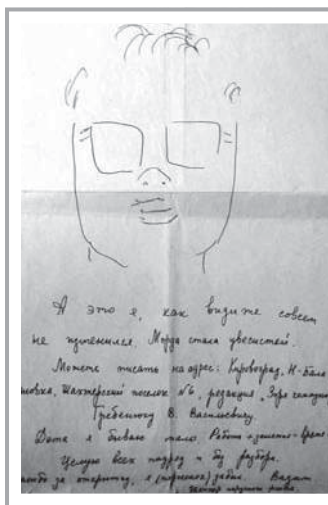 А это я, как видите совсем
не изменился. Морда стала двесистей.
Можете писать на адрес: Кировоград, Н-Бала
шовка, Шахтерский поселок №6, редакция
Гребенюку В. Васильевичу.
Дома я бываю мало. Работа и заметно Время
Целую всех подряд и без разбора.
спасибо за открытку, я (поросенок) забыл. Вадим